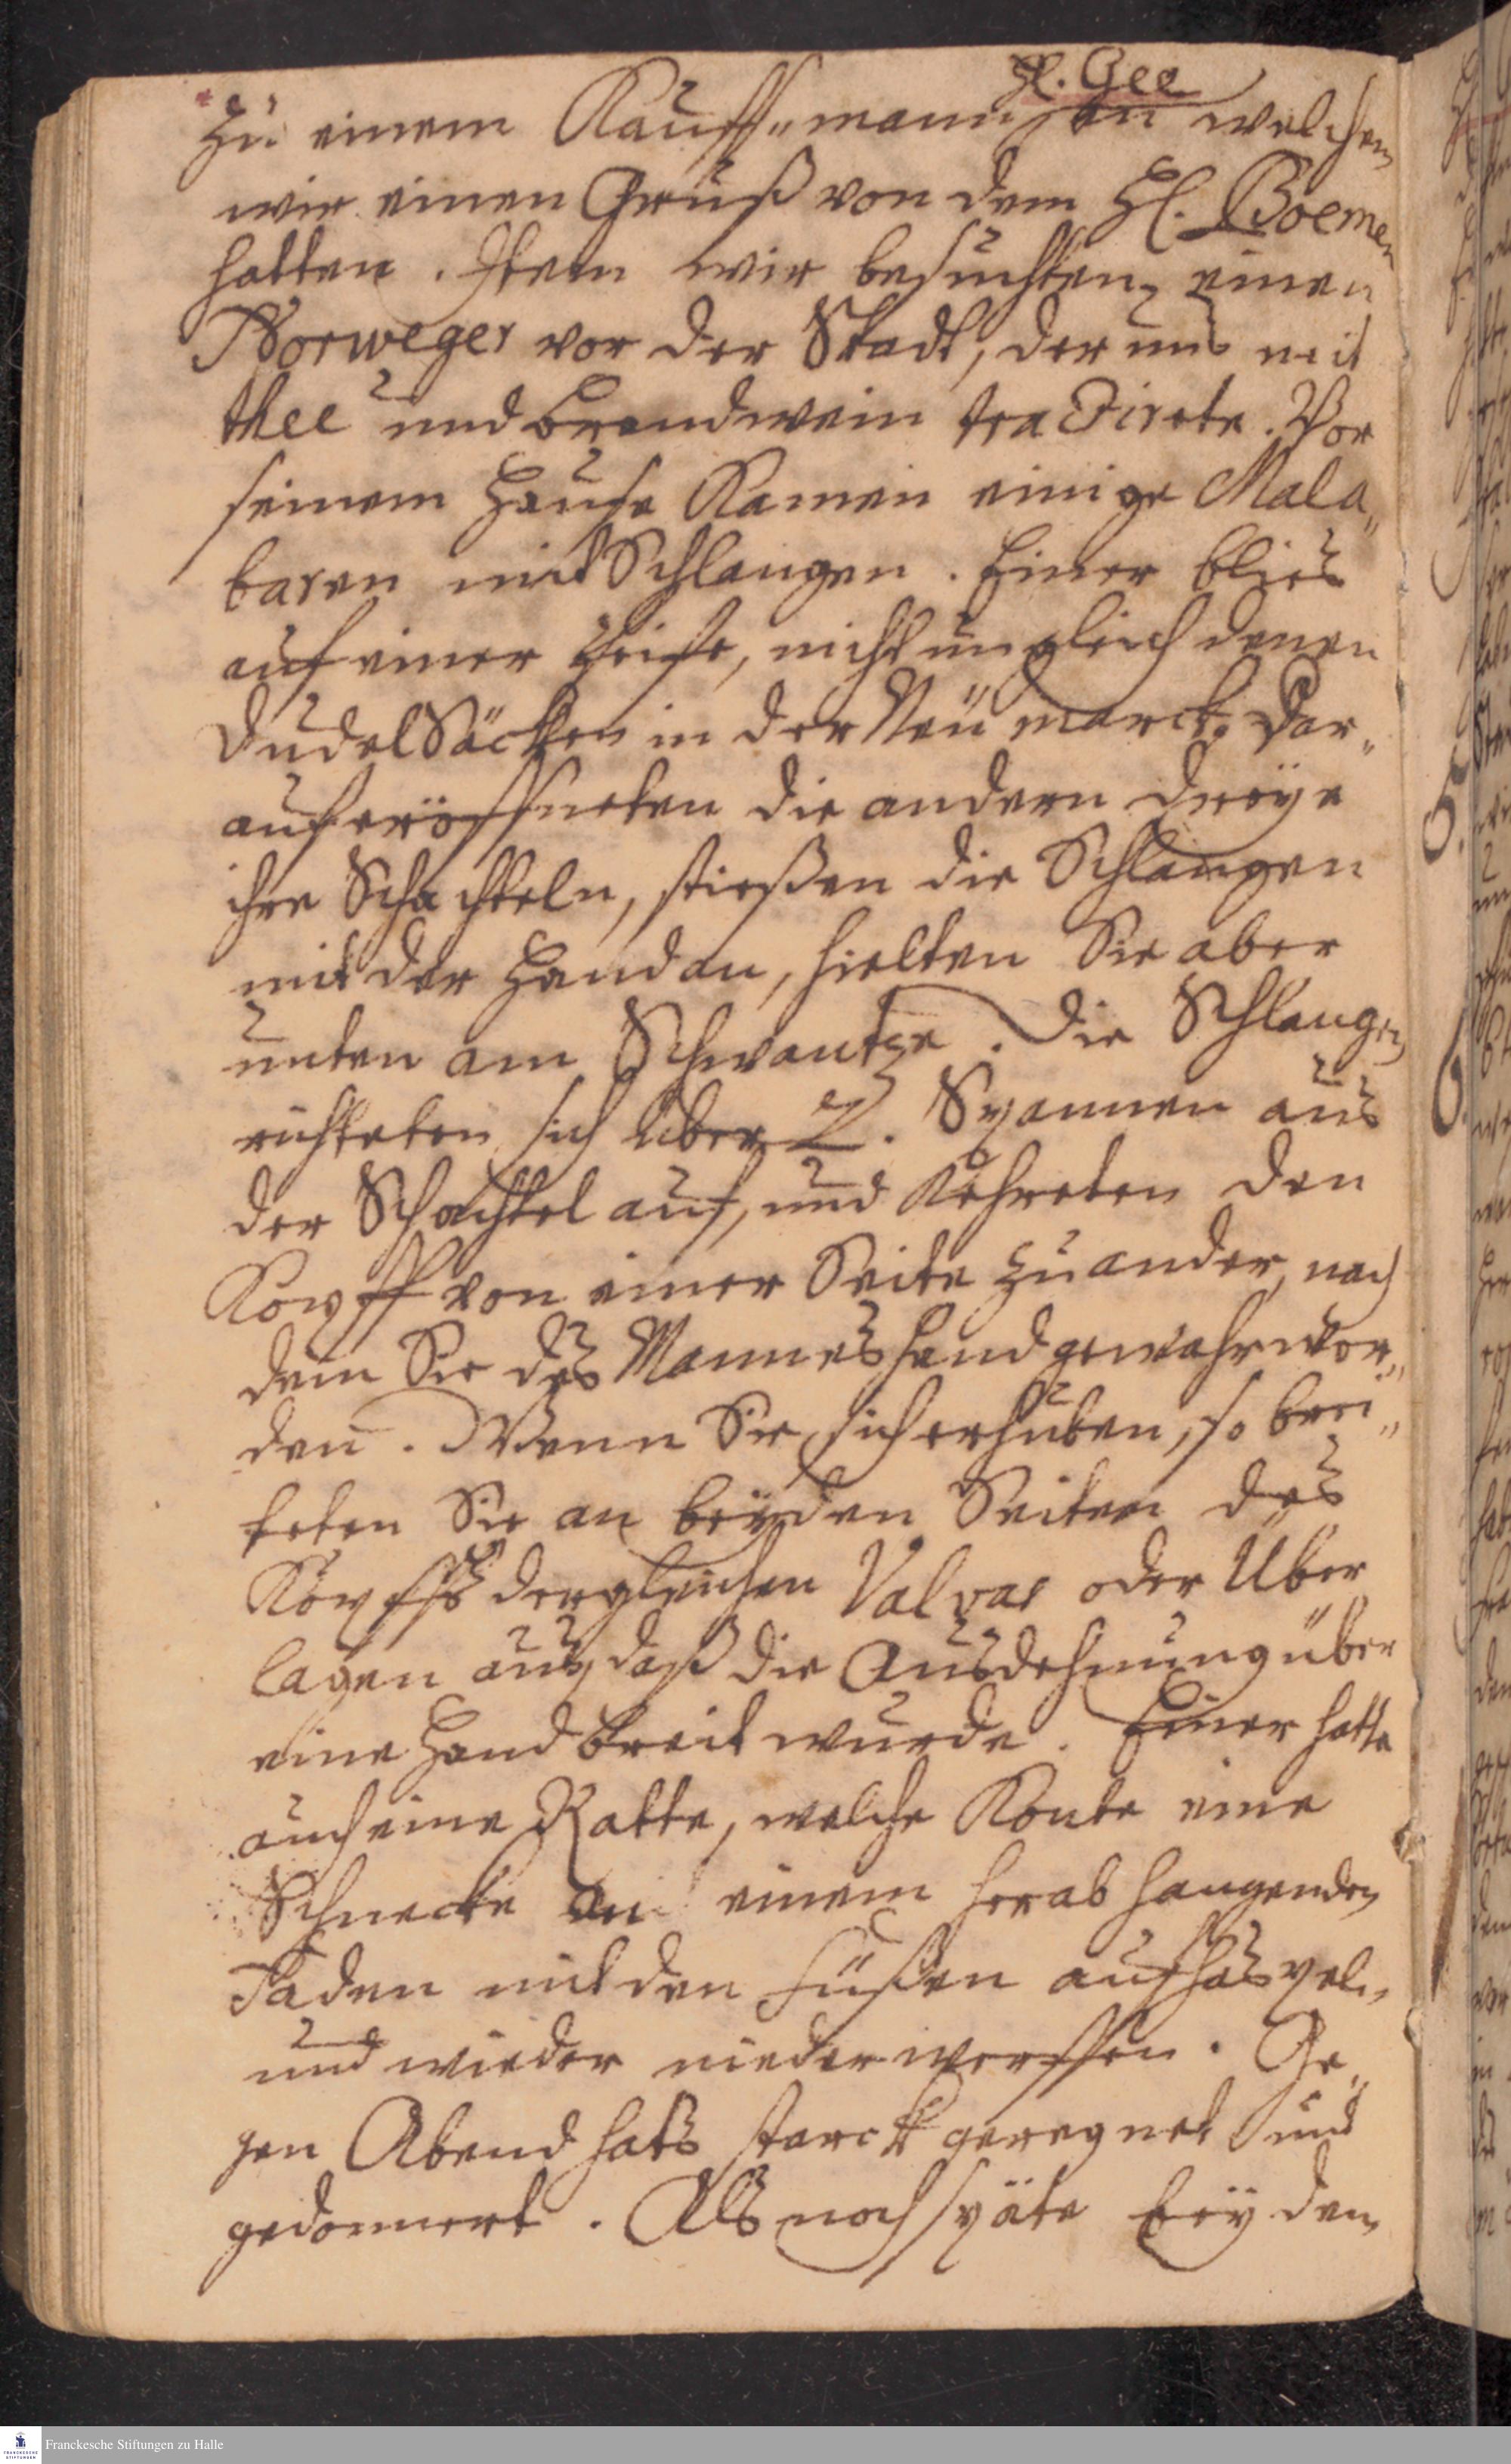 H. Gee
zu einem Kauff„mann an welchen
wir einen Gruß von dem H. Boemen
hatten. Item wir besuchten einen
Norweger vor der Stadt, der uns mit
thee und brandwein tractirete. Vor
seinem Hause kamen einige Mala„
baren mit Schlangen. Einer blies
auf einer Pfeife, nicht ungleich denen
Dudelsäcken in der Neümarck. Dar„
auf eröffneten die andern dreÿe
ihre Schachteln, stießen die Schlangen
mit der Hand an, hielten Sie aber
unten am Schwantze. Die Schlangen
richteten sich über 2. Spannen aus
der Schachtel auf, und kehreten den
Kopff von einer Seite zu ander, nach
dem Sie des Mannes Hand gewahr wor„
den. Wenn Sie sich erhuben, so brei„
teten Sie an beÿden Seiten des
Kopffs dergleichen Valvas oder Über
lagen aus, daß die Ausdehnung über
eine Hand breit wurde. Einer hatte
auch eine Ratte, welche konte eine
Schnecke an einem herab hangenden
Faden mit den Füßen aufhaspeln,
und wieder nieder werffen. Ge„
gen Abend hats starck geregnet und
gedonnert. Als noch späte beÿ dem
Franckesche Stiftungen zu Halle